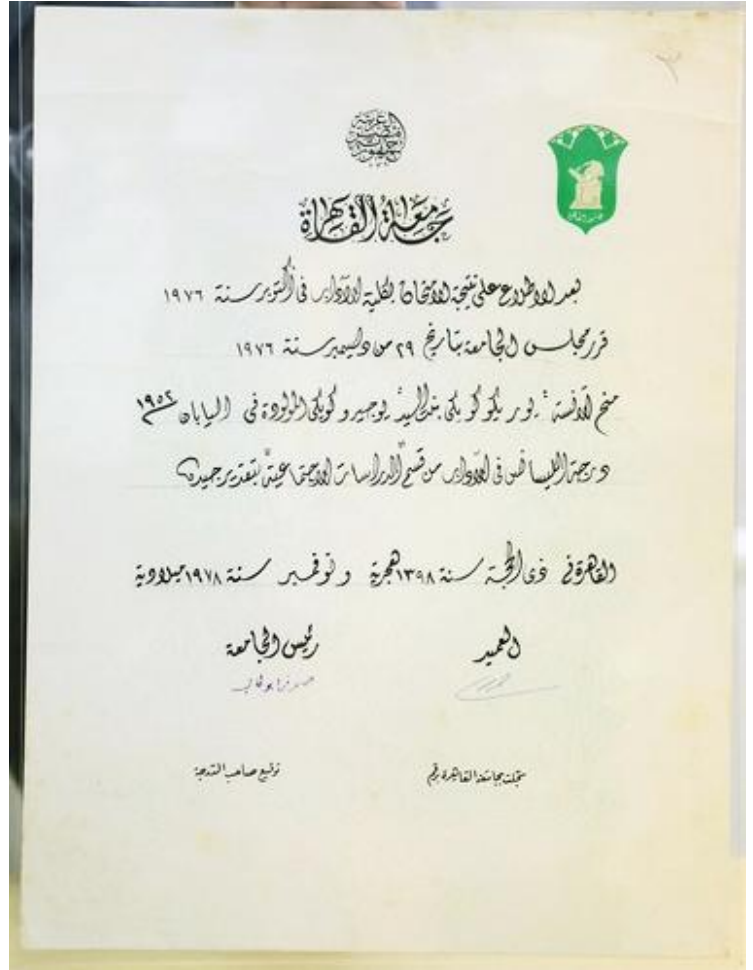 ٣
جمهورية مصر العربية
جامعة القاهرة
جامعة القاهرة
بعد الاطلاع على نتيجة الامتحان بكلية الآداب فى أكتوبر سنة ١٩٧٦
قرر مجلس الجامعة بتاريخ ٢٩ من ديسمبر سنة ١٩٧٦
منح الآنسة / يوريكو كويكى بنت السيد / يوجيرو كويكى المولودة فى اليابان ١٩٥٢
درجة الليسانس فى الآداب من قسم الدراسات الاجتماعية بتقدير جيد
القاهرة فى ذى الحجة سنة ١٣٩٨ هجرية و نوفمبر سنة ١٩٧٨ ميلادية
العميد رئيس الجامعة
سجلت بجامعة القاهرة رقم توقيع صاحب الدرجة